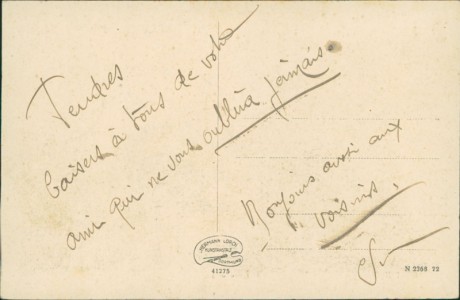 Tendres
baisers à tous de votre
ami qui ne vous oublira jamais.
Bonjours aussi aux
voisins.
41275
N 2768 72